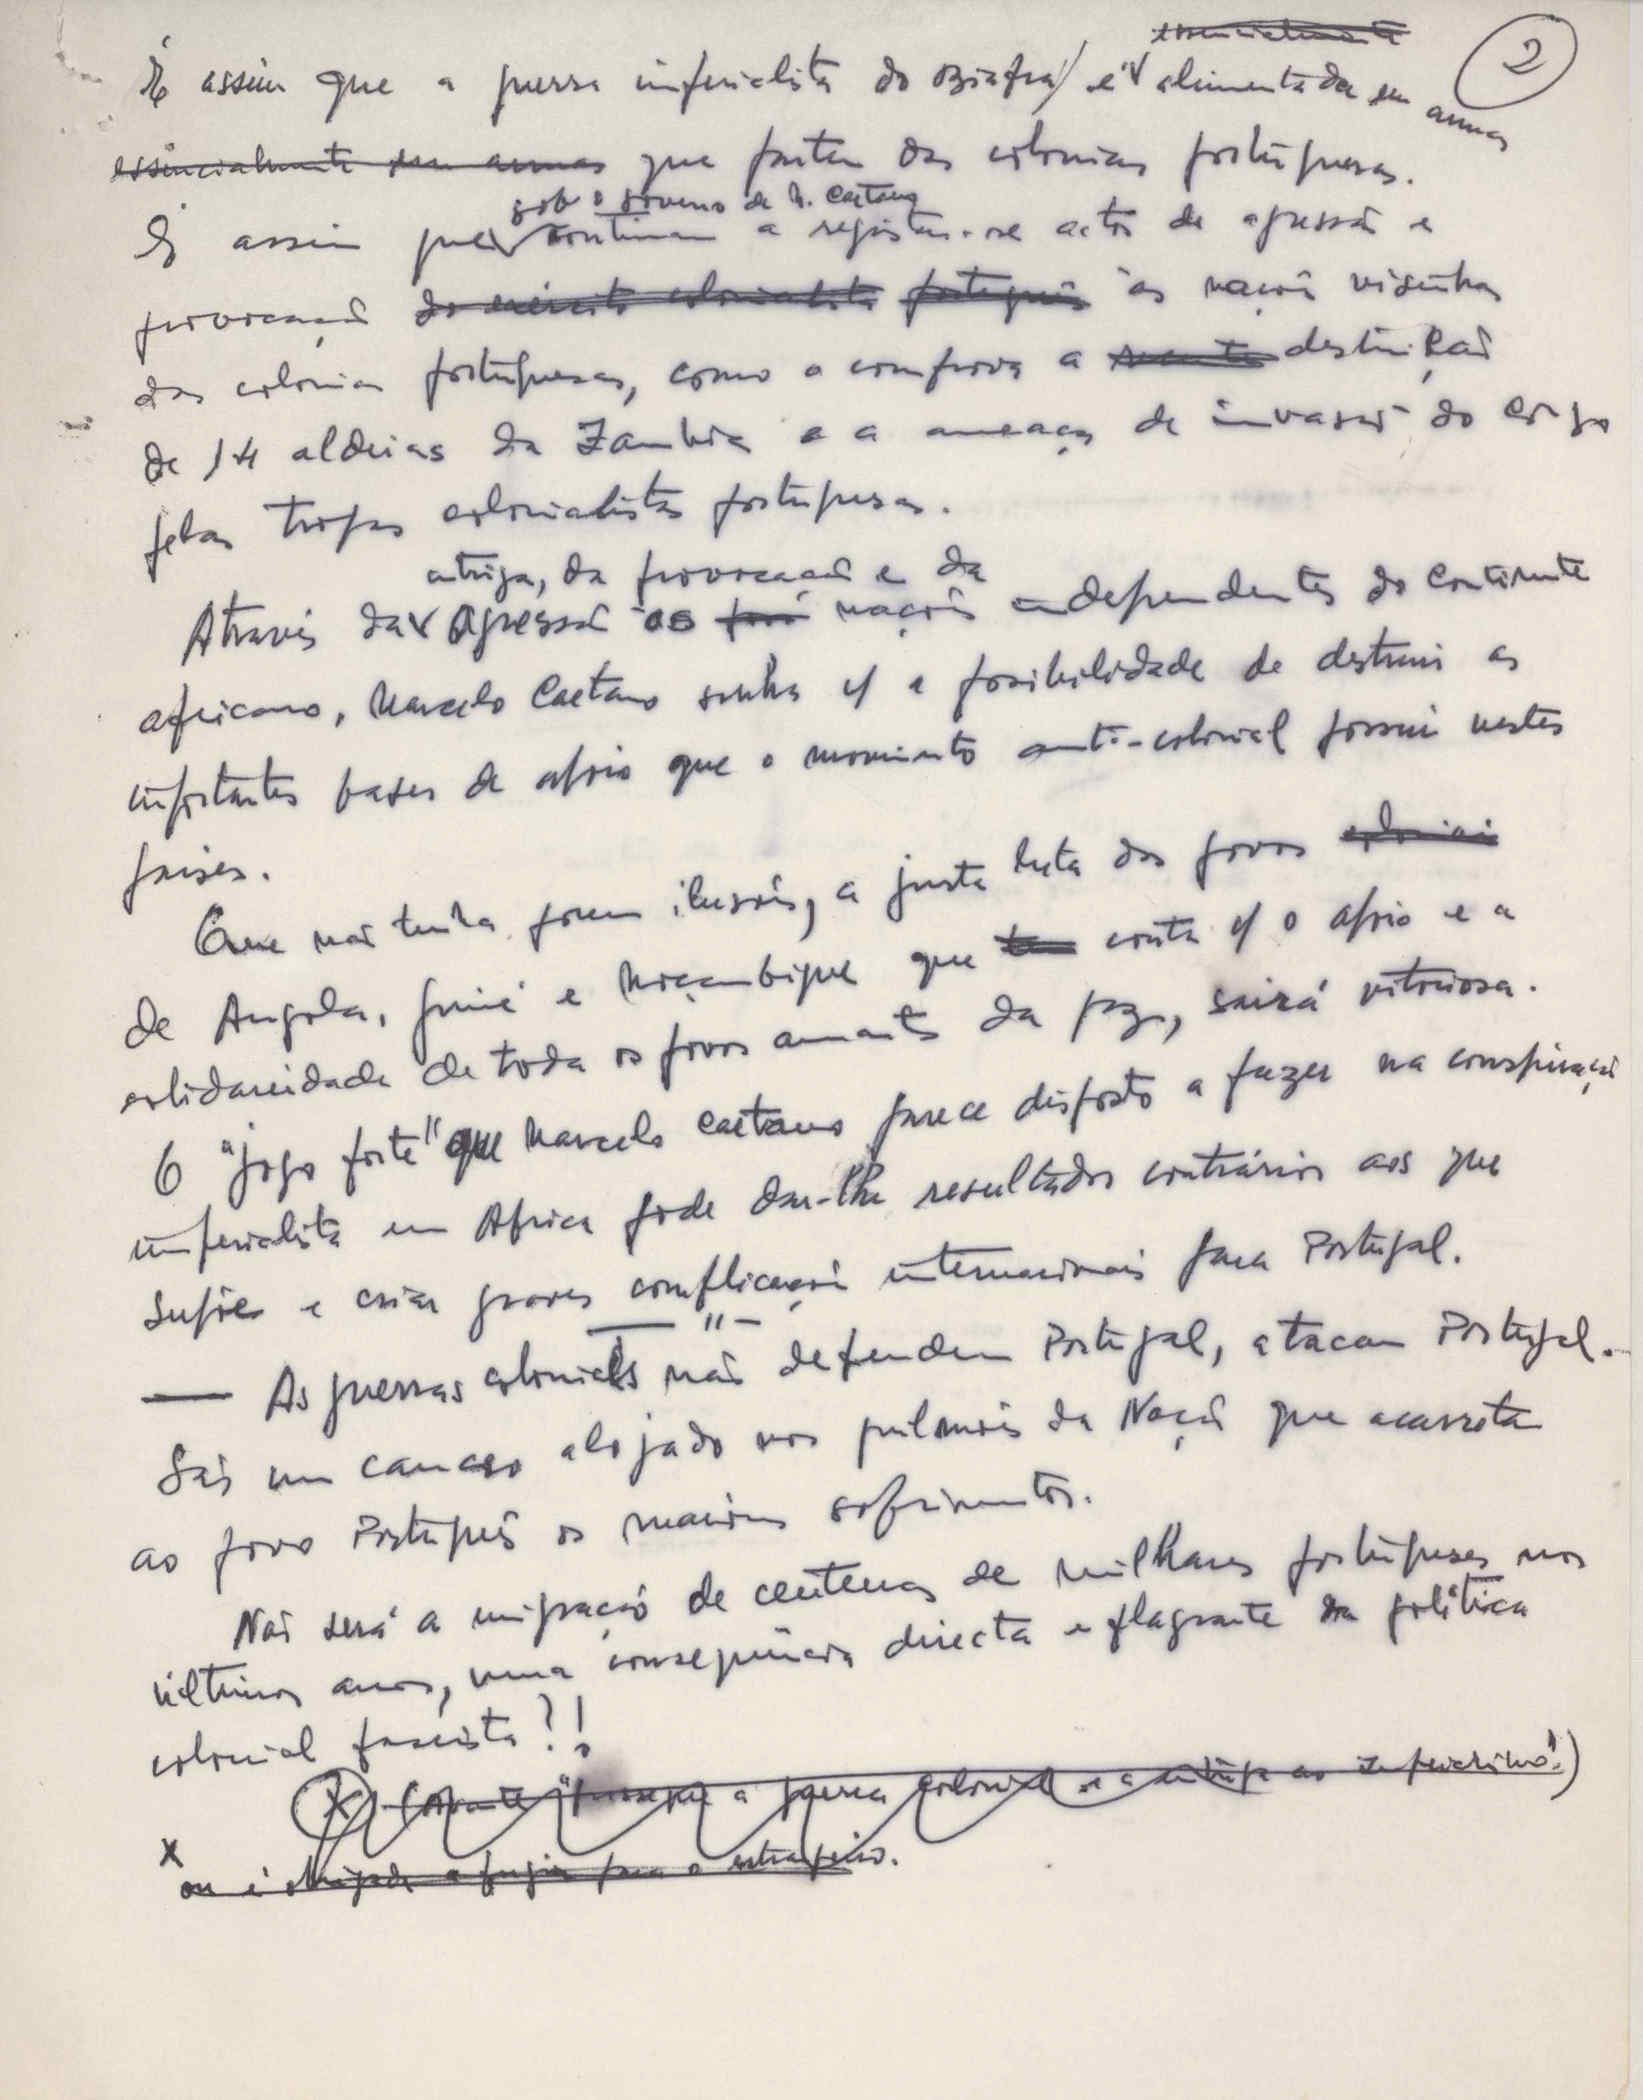 2
essencialmente
É assim que a guerra imperialista do Biafra é alimentada em armas
essencialmente em armas que partem das colónias portuguesas.
sob o governo de M. Caetano
É assim que continuam a registar-se actos de agressão e
provocação do exército colonialista português às nações visinhas
das colónias portuguesas, como o comprova a recente destruição
de 14 aldeias da Zambia e a ameaça de invasão do Congo
pelas tropas colonialistas portuguesas.
intriga, da provocação e da
Através da agressão às nações independentes do Continente
africano, Marcelo Caetano sonha c/ a possibilidade de destruir as
importantes bases de apoio que o movimento anti-colonial possui nestes
países.
Que não tenha porem ilusões, a justa luta dos povos coloniais
de Angola, Guiné e Moçambique que tem conta c/ o apoio e a
solidariedade de todos os povos amantes da paz, sairá vitoriosa.
O "jogo forte" que Marcelo Caetano parece disposto a fazer na conspiração
imperialista em Africa pode dar-lhe resultados contrários aos que
supõe e criar graves complicações internacionais para Portugal.
— " —
— As guerras coloniais não defendem Portugal, atacam Portugal.
São um cancro alojado nos pulmões da Nação que acarreta
ao povo Português os maiores sofrimentos.
Não será a emigração de centenas de milhares portugueses nos
últimos anos, uma consequência directa e flagrante da política
colonial fascista?!
(X) prossegue a guerra colonial e a entrega ao imperialismo!)
X
ou é obrigada a fugir para o estrangeiro.